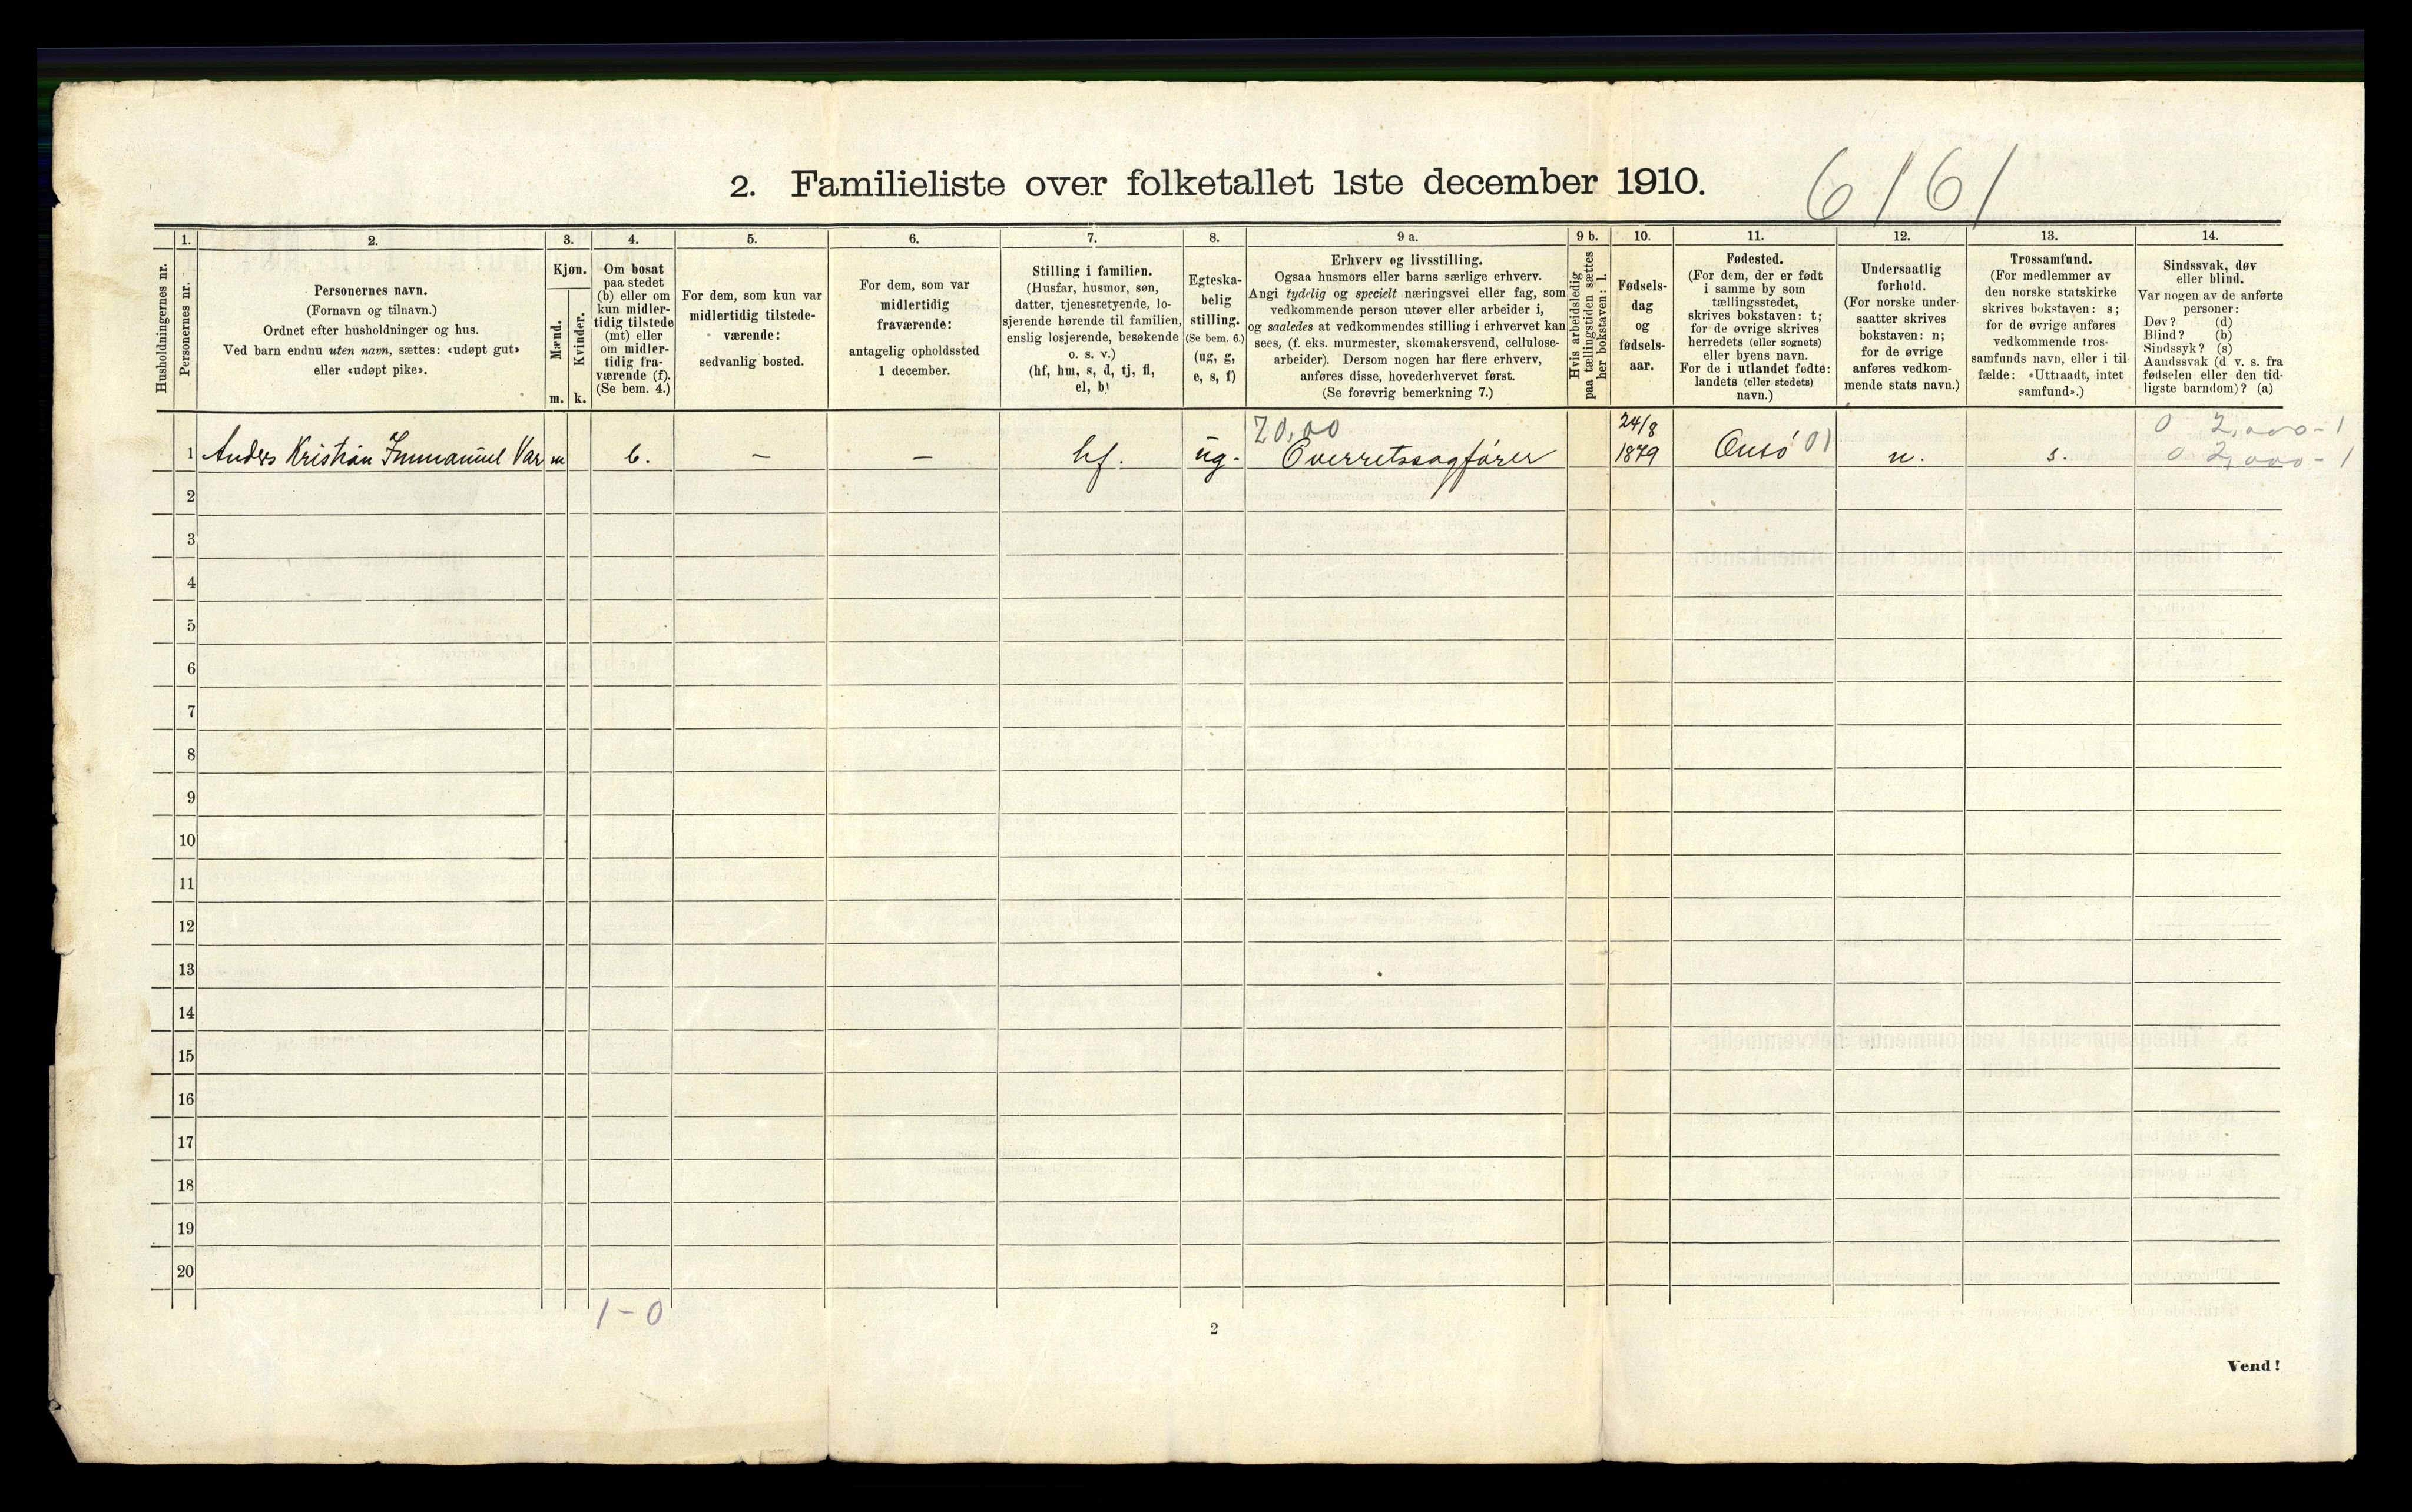 2. Familieliste over folketallet 1ste december 1910.
6161
Husholdningernes nr.
1.
Personernes nr.
2.
Personernes navn.
(Fornavn og tilnavn.)
Ordnet efter husholdninger og hus.
Ved barn endnu uten navn, sættes: «udøpt gut»
eller «udøpt pike».
3.
Kjøn.
Mænd.
Kvinder.
m.
k.
4.
Om bosat
paa stedet
(b) eller om
kun midler-
tidig tilstede
(mt) eller
om midler-
tidig fra-
værende (f).
(Se bem. 4.)
5.
For dem, som kun var
midlertidig tilstede-
værende:
sedvanlig bosted.
6.
For dem, som var
midlertidig
fraværende:
antagelig opholdssted
1 december.
7.
Stilling i familien.
(Husfar, husmor, søn,
datter, tjenestetyende, lo-
sjerende hørende til familien,
enslig losjerende, besøkende
o. s. v.)
(hf, hm, s, d, tj, fl,
el, b)
8.
Egteska-
belig
stilling.
(Se bem. 6.)
(ug, g,
e, s, f)
9 a.
Erhverv og livsstilling.
Ogsaa husmors eller barns særlige erhverv.
Angi tydelig og specielt næringsvei eller fag, som
vedkommende person utøver eller arbeider i,
og saaledes at vedkommendes stilling i erhvervet kan
sees, (f. eks. murmester, skomakersvend, cellulose-
arbeider). Dersom nogen har flere erhverv,
anføres disse, hovederhvervet først.
(Se forøvrig bemerkning 7.)
9 b.
Hvis arbeidsledig
paa tællingstiden sættes
her bokstaven: l.
10.
Fødsels-
dag
og
fødsels-
aar.
11.
Fødested.
(For dem, der er født
i samme by som
tællingsstedet,
skrives bokstaven: t;
for de øvrige skrives
herredets (eller sognets)
eller byens navn.
For de i utlandet fødte:
landets (eller stedets)
navn.)
12.
Undersaatlig
forhold.
(For norske under-
saatter skrives
bokstaven: n;
for de øvrige
anføres vedkom-
mende stats navn.)
13.
Trossamfund.
(For medlemmer av
den norske statskirke
skrives bokstaven: s;
for de øvrige anføres
vedkommende tros-
samfunds navn, eller i til-
fælde: «Uttraadt, intet
samfund».)
14.
Sindssvak, døv
eller blind.
Var nogen av de anførte
personer:
Døv? (d)
Blind? (b)
Sindssyk? (s)
Aandssvak (d. v. s. fra
fødselen eller den tid-
ligste barndom)? (a)
20,00 24/8 0 2,000-1
1 Anders Kristian Immanuel Var m b. – – hf. ug. Overretssagfører 1879 Onsö 01 n. s. 0 2,000-1
2
3
4
5
6
7
8
9
10
11
12
13
14
15
16
17
18
19
20
1-0
2
Vend!